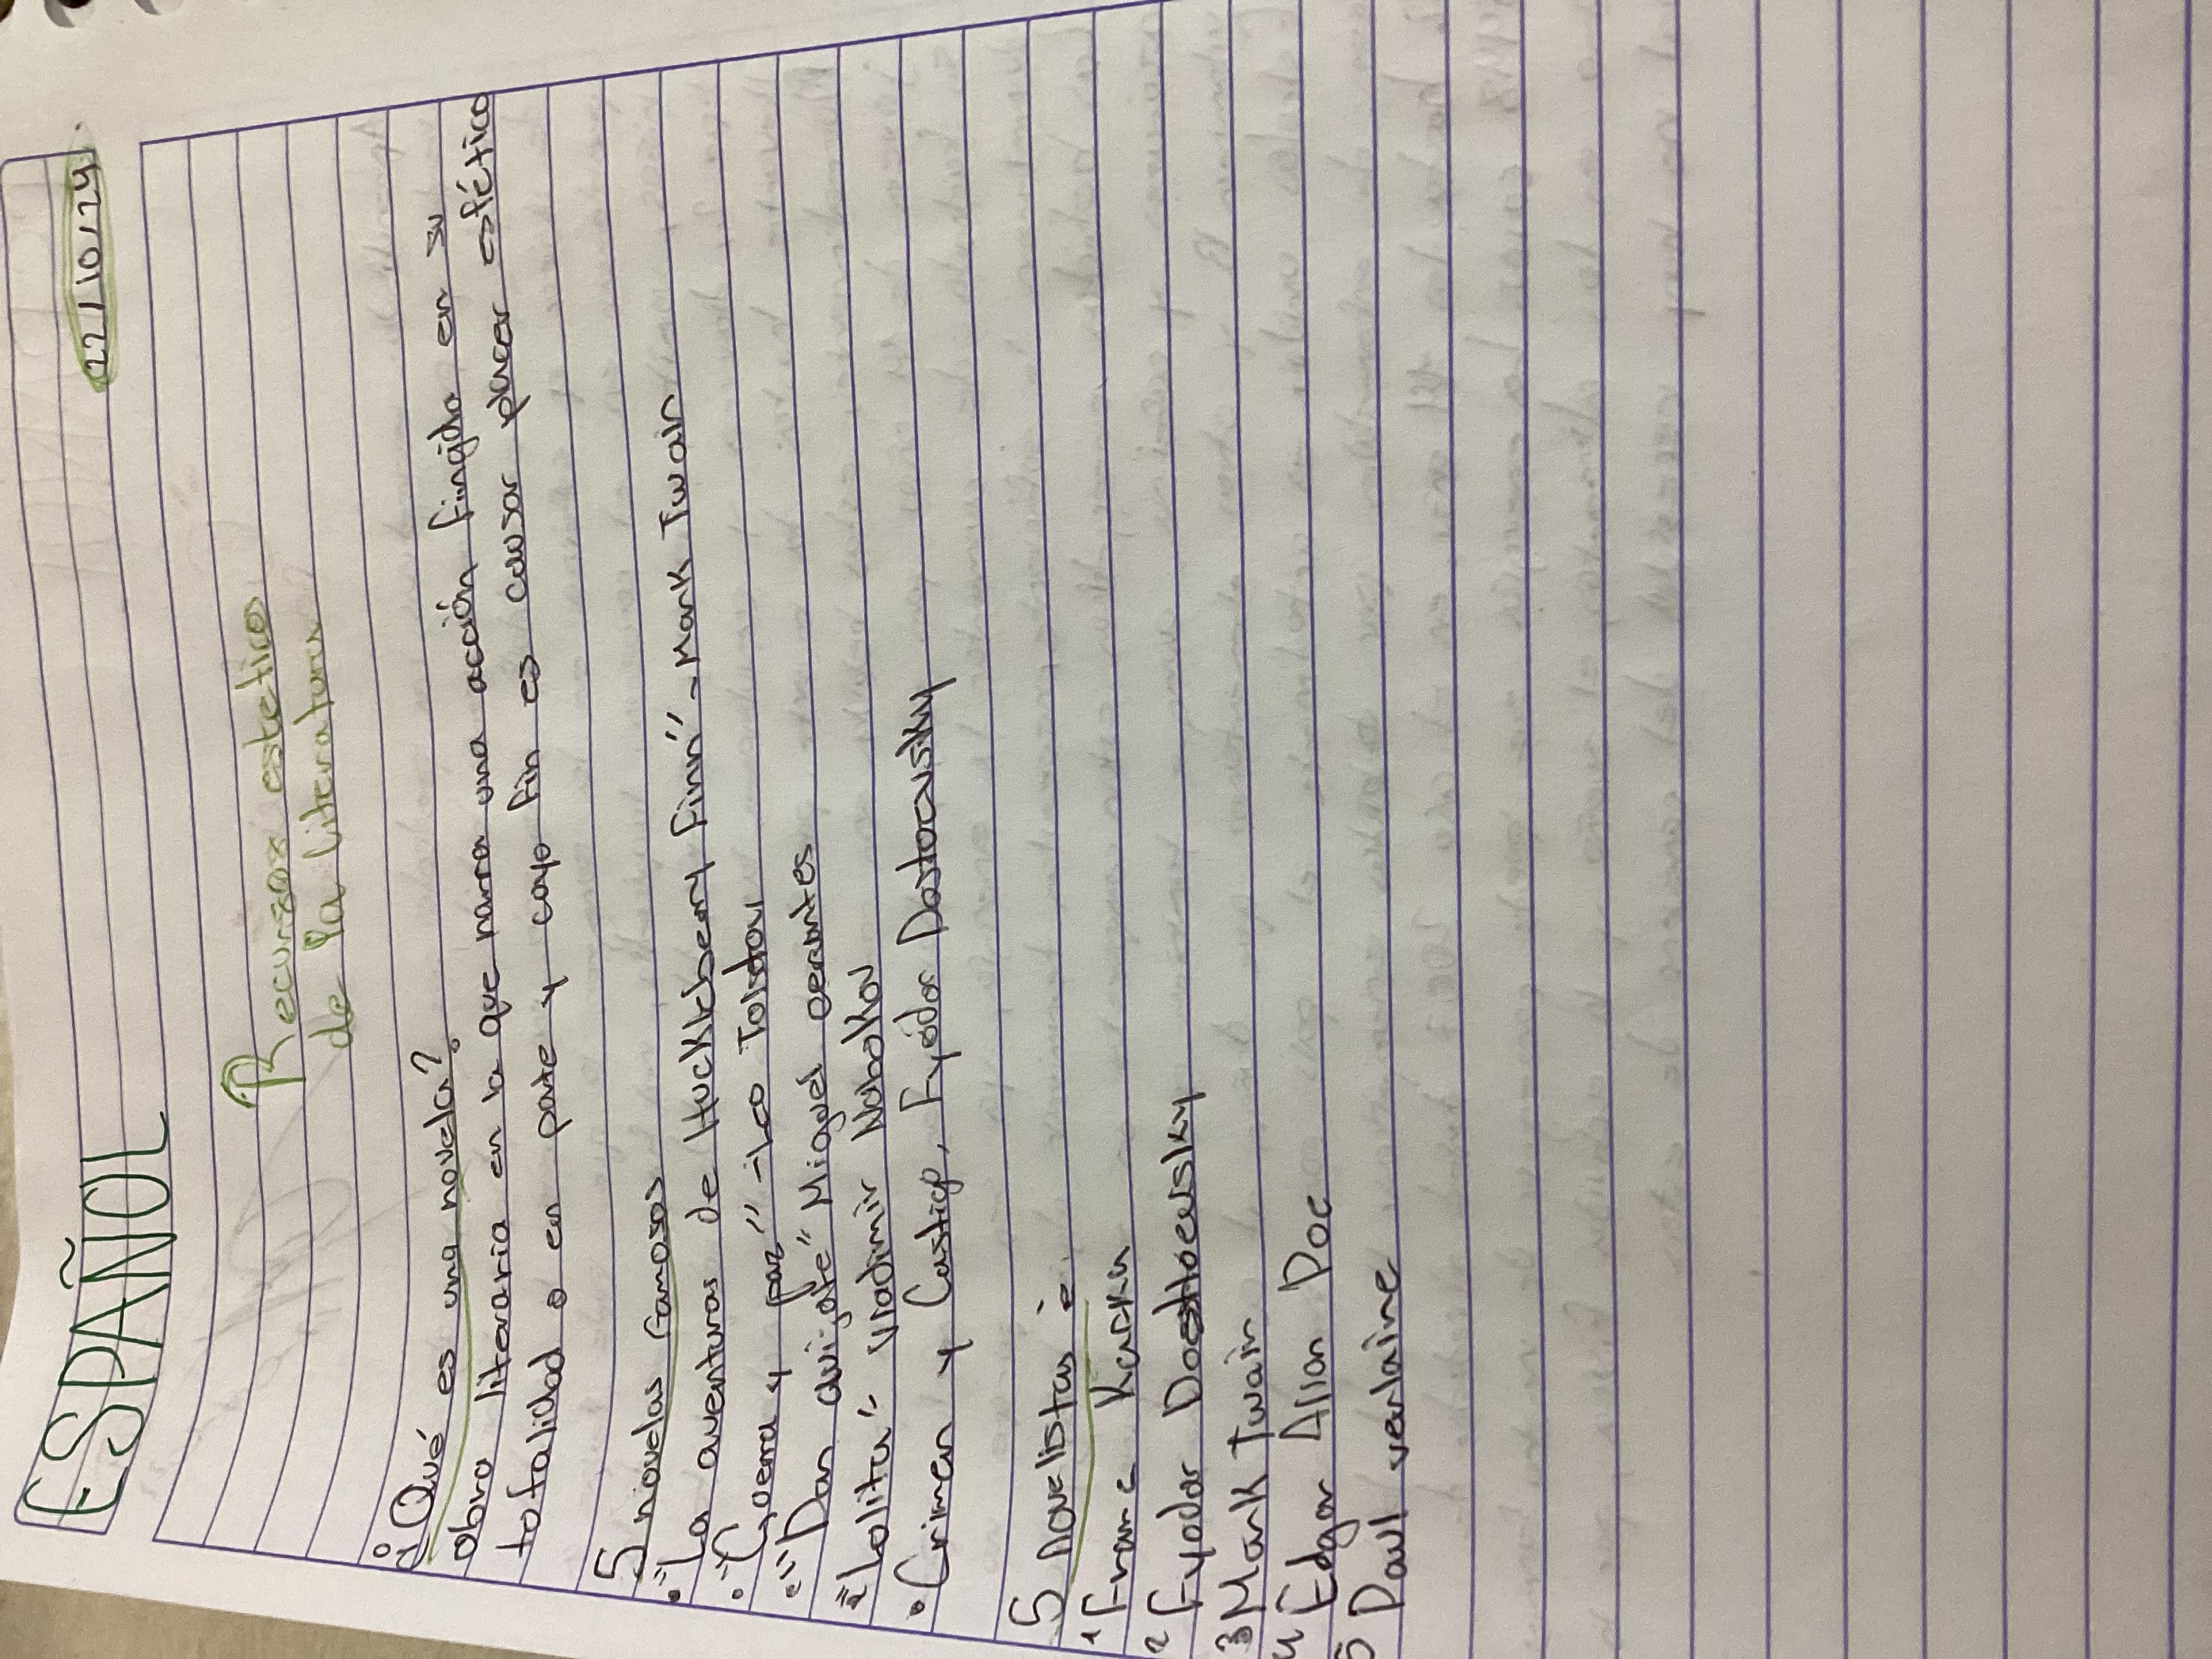 ESPAÑOL
22/10/24.
Recursos estetico
de la literatura
¿Qué es una novela?
obra literaria en la que narra una acción fingida en su
totalidad o en parte y cuyo fin es causar placer estético
5 novelas famosas
• "La aventuras de Huckleberry Finn" - Mark Twain
• "Guerra y paz" - Leo Tolstov
• "Don quijote" Miguel cervantes
"Lolita" Vladimir Nabokov
• Crimen y Castigo, Fyodor Dostoevsky
5 novelistas:
1 Franc Kafka
2 Fyodor Dostoevsky
3 Mark Twain
4 Edgar Allan Poe
5 Paul verlaine